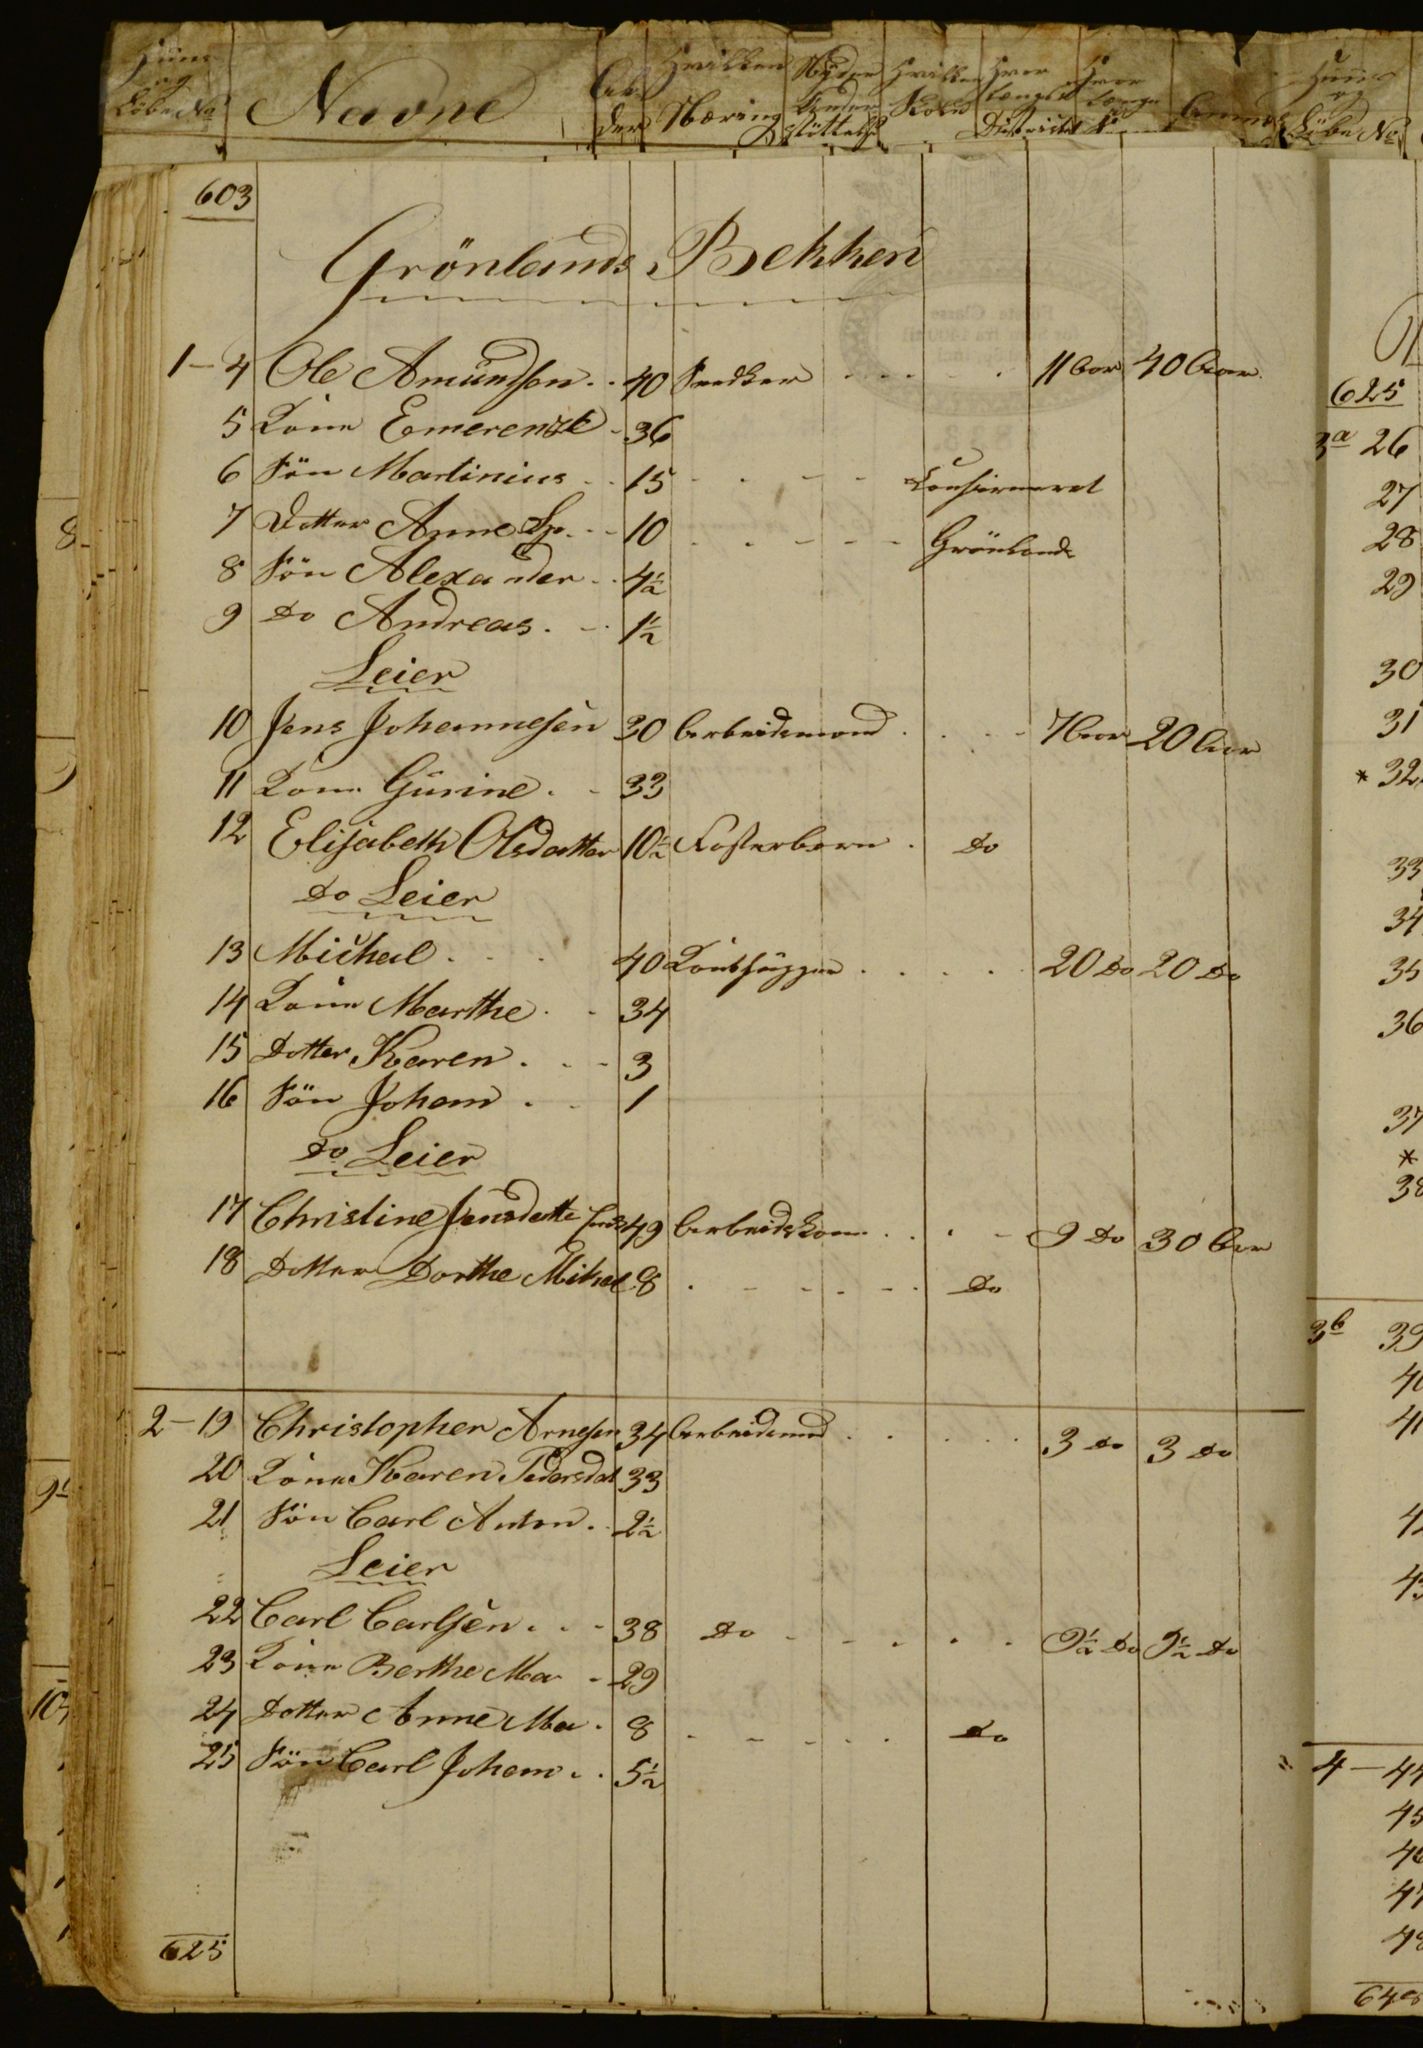 Huus og Löbe No Navne Alder Hvilken Næring Nyder Understöttelse Hvilken Skole Hvor længe i Districtet Hvor længe i Huus og Löbe No
603
Grönlands Bekken
1 - 4 Ole Amundsen . . 40 Snedker . . . . . 11 Aar 40 Aar
5 Kone Emerenze - 36
6 Sön Martinius . . 15 - . - - Confirmeret
7 Datter Anne Sp. . - 10 . . - - - Grönlands
8 Sön Alexander . . 4½
9 Do Andreas . - . 1½
Leier
10 Jens Johannesen 30 Arbeidsmand . . . - 7 Aar 20 Aar
11 Kone Gurine . - 33
12 Elisabeth Olsdatter 10½ Fosterbarn . Do
Do Leier
13 Michael . . . 40 . . . . . 20 Do 20 Do
14 Kone Marthe . . 34
15 Dotter Karen . . - 3
16 Sön Johan . . 1
Do Leier
17 Christine Jensdatte 49 Arbeidskone . . . - 9 Do 30 Aar
18 Dotter Dorthe Mikael 8 . - - - - . Do
2 - 19 Christopher Arnesen 34 Arbeidsmd . . . . . 3 Do 3 Do
20 Kone Karen Pedersdat 33
21 Sön Carl Anton . 2½
Leier
22 Carl Carlsen . . - 38 Do - - . . . 9½ Do 9½ Do
23 Kone Berthe Ma - 29
24 Dotter Anne Ma . 8 - - . . . Do
25 Sön Carl Johan . . 5½
625
625
3a 26
27
28
29
30
31
* 32
33
34
35
36
37
*
38
3b 39
4 - 44
45
46
47
48